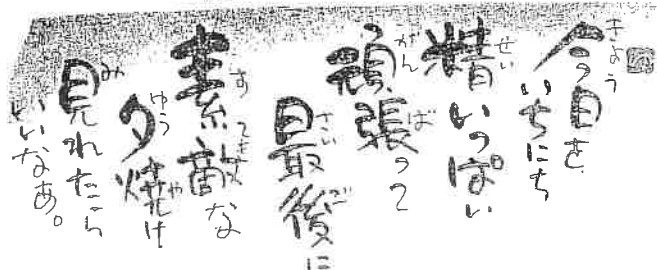 今日を
いちにち
精いっぱい
頑張って
最後に
素敵な
夕焼け
見れたら
いいなあ。